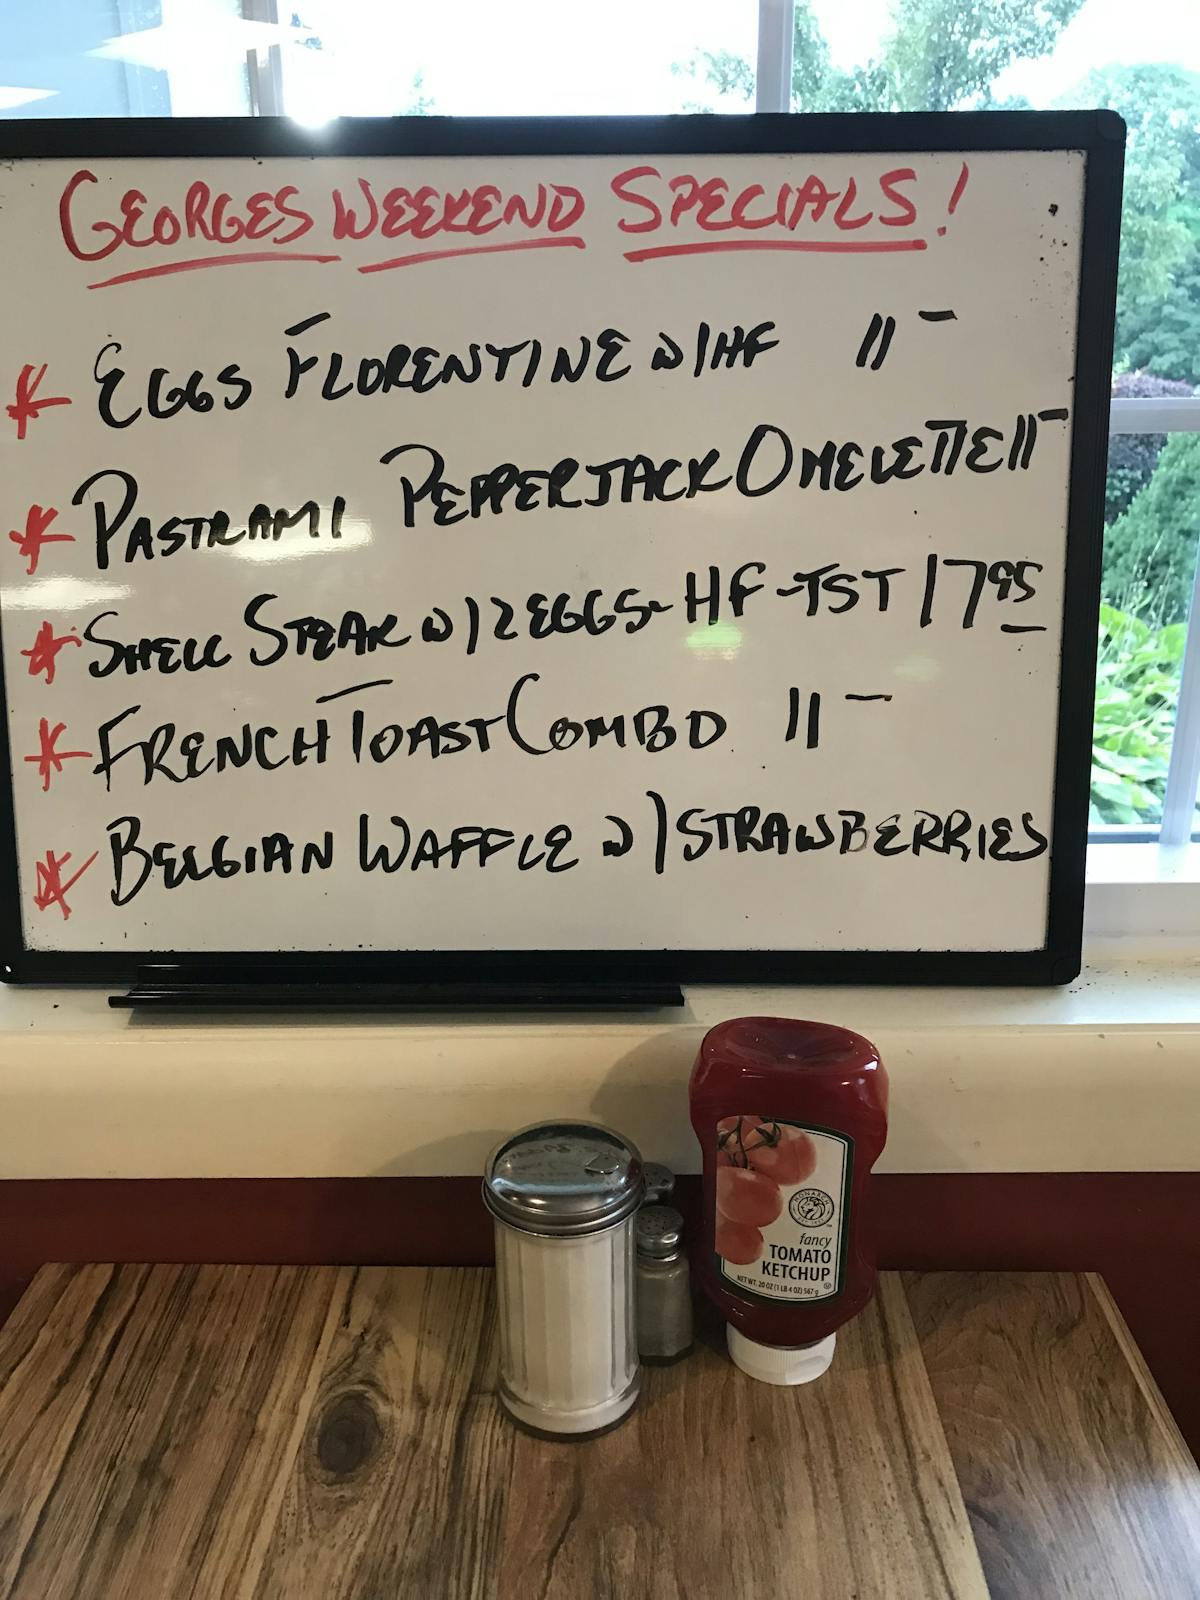 GEORGES WEEKEND SPECIALS!
* EGGS FLORENTINE W/HF 11-
* PASTRAMI PEPPERJACK OMELETTE 11-
* SHELL STEAK W/2 EGGS-HF-TST 17.95
* FRENCH TOAST COMBO 11-
* BELGIAN WAFFLE W/STRAWBERRIES
MONARCH
fancy
TOMATO
KETCHUP
NET WT. 20 OZ (1 LB 4 OZ) 567 g